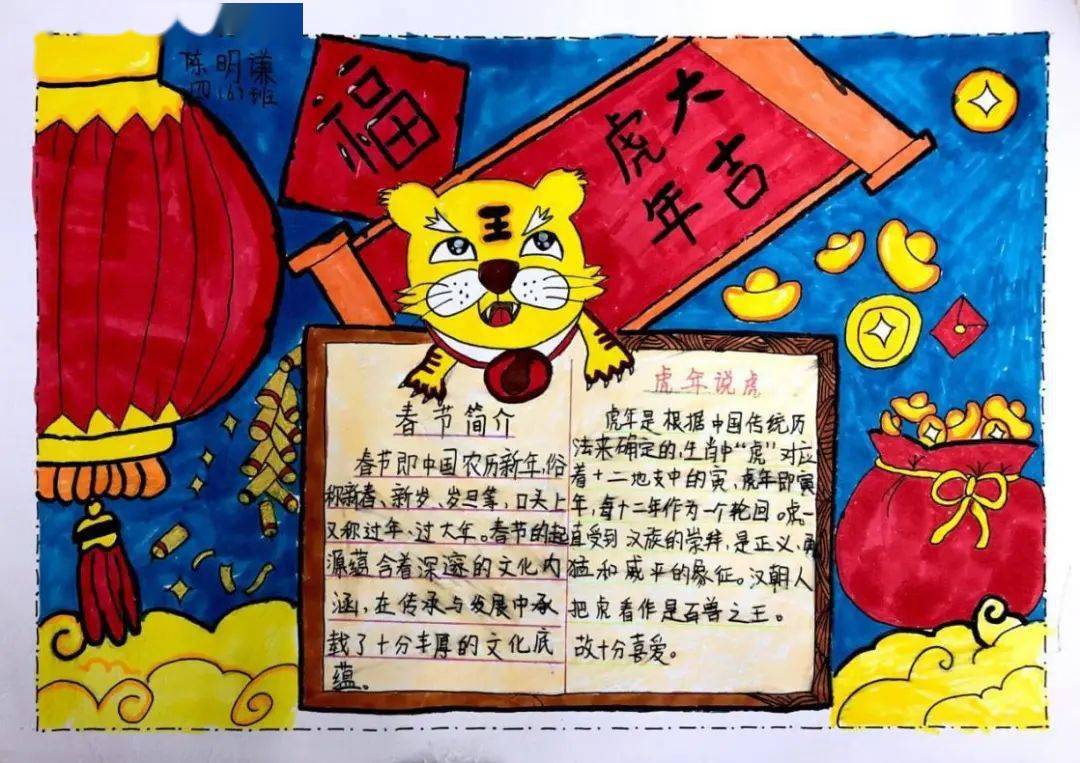 陈明谦
四(6)班
福
大吉
虎年
王
春节简介
春节即中国农历新年,俗
称新春、新岁、岁旦等,口头上
又称过年、过大年。春节的起
源蕴含着深邃的文化内
涵,在传承与发展中承
载了十分丰厚的文化底
蕴。
虎年说虎
虎年是根据中国传统历
法来确定的,生肖中“虎”对应
着十二地支中的寅,虎年即寅
年,每十二年作为一个轮回。虎一
直受到汉族的崇拜,是正义、勇
猛和威平的象征。汉朝人
把虎看作是百兽之王。
故十分喜爱。